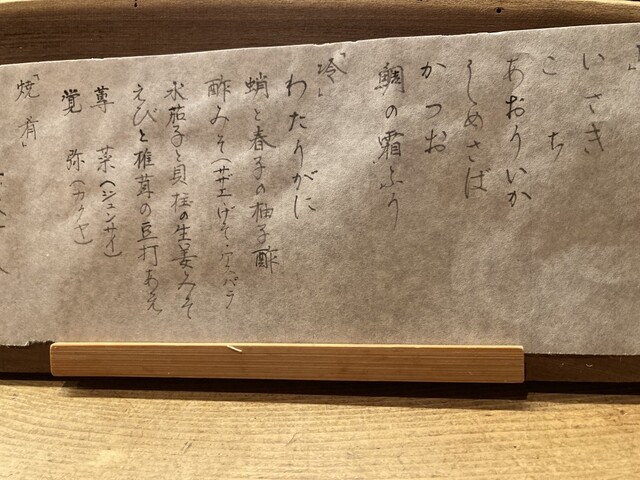 いさき
こち
あおりいか
しめさば
かつお
鯛の霜ふり
「冷」
わたりがに
蛸と春子の柚子酢
酢みそ(サエ上げそ
水茄子と貝柱の生姜みそ
えびと椎茸の豆打あえ
蓴菜(ジュンサイ)
覚弥(カクヤ)
「焼肴」